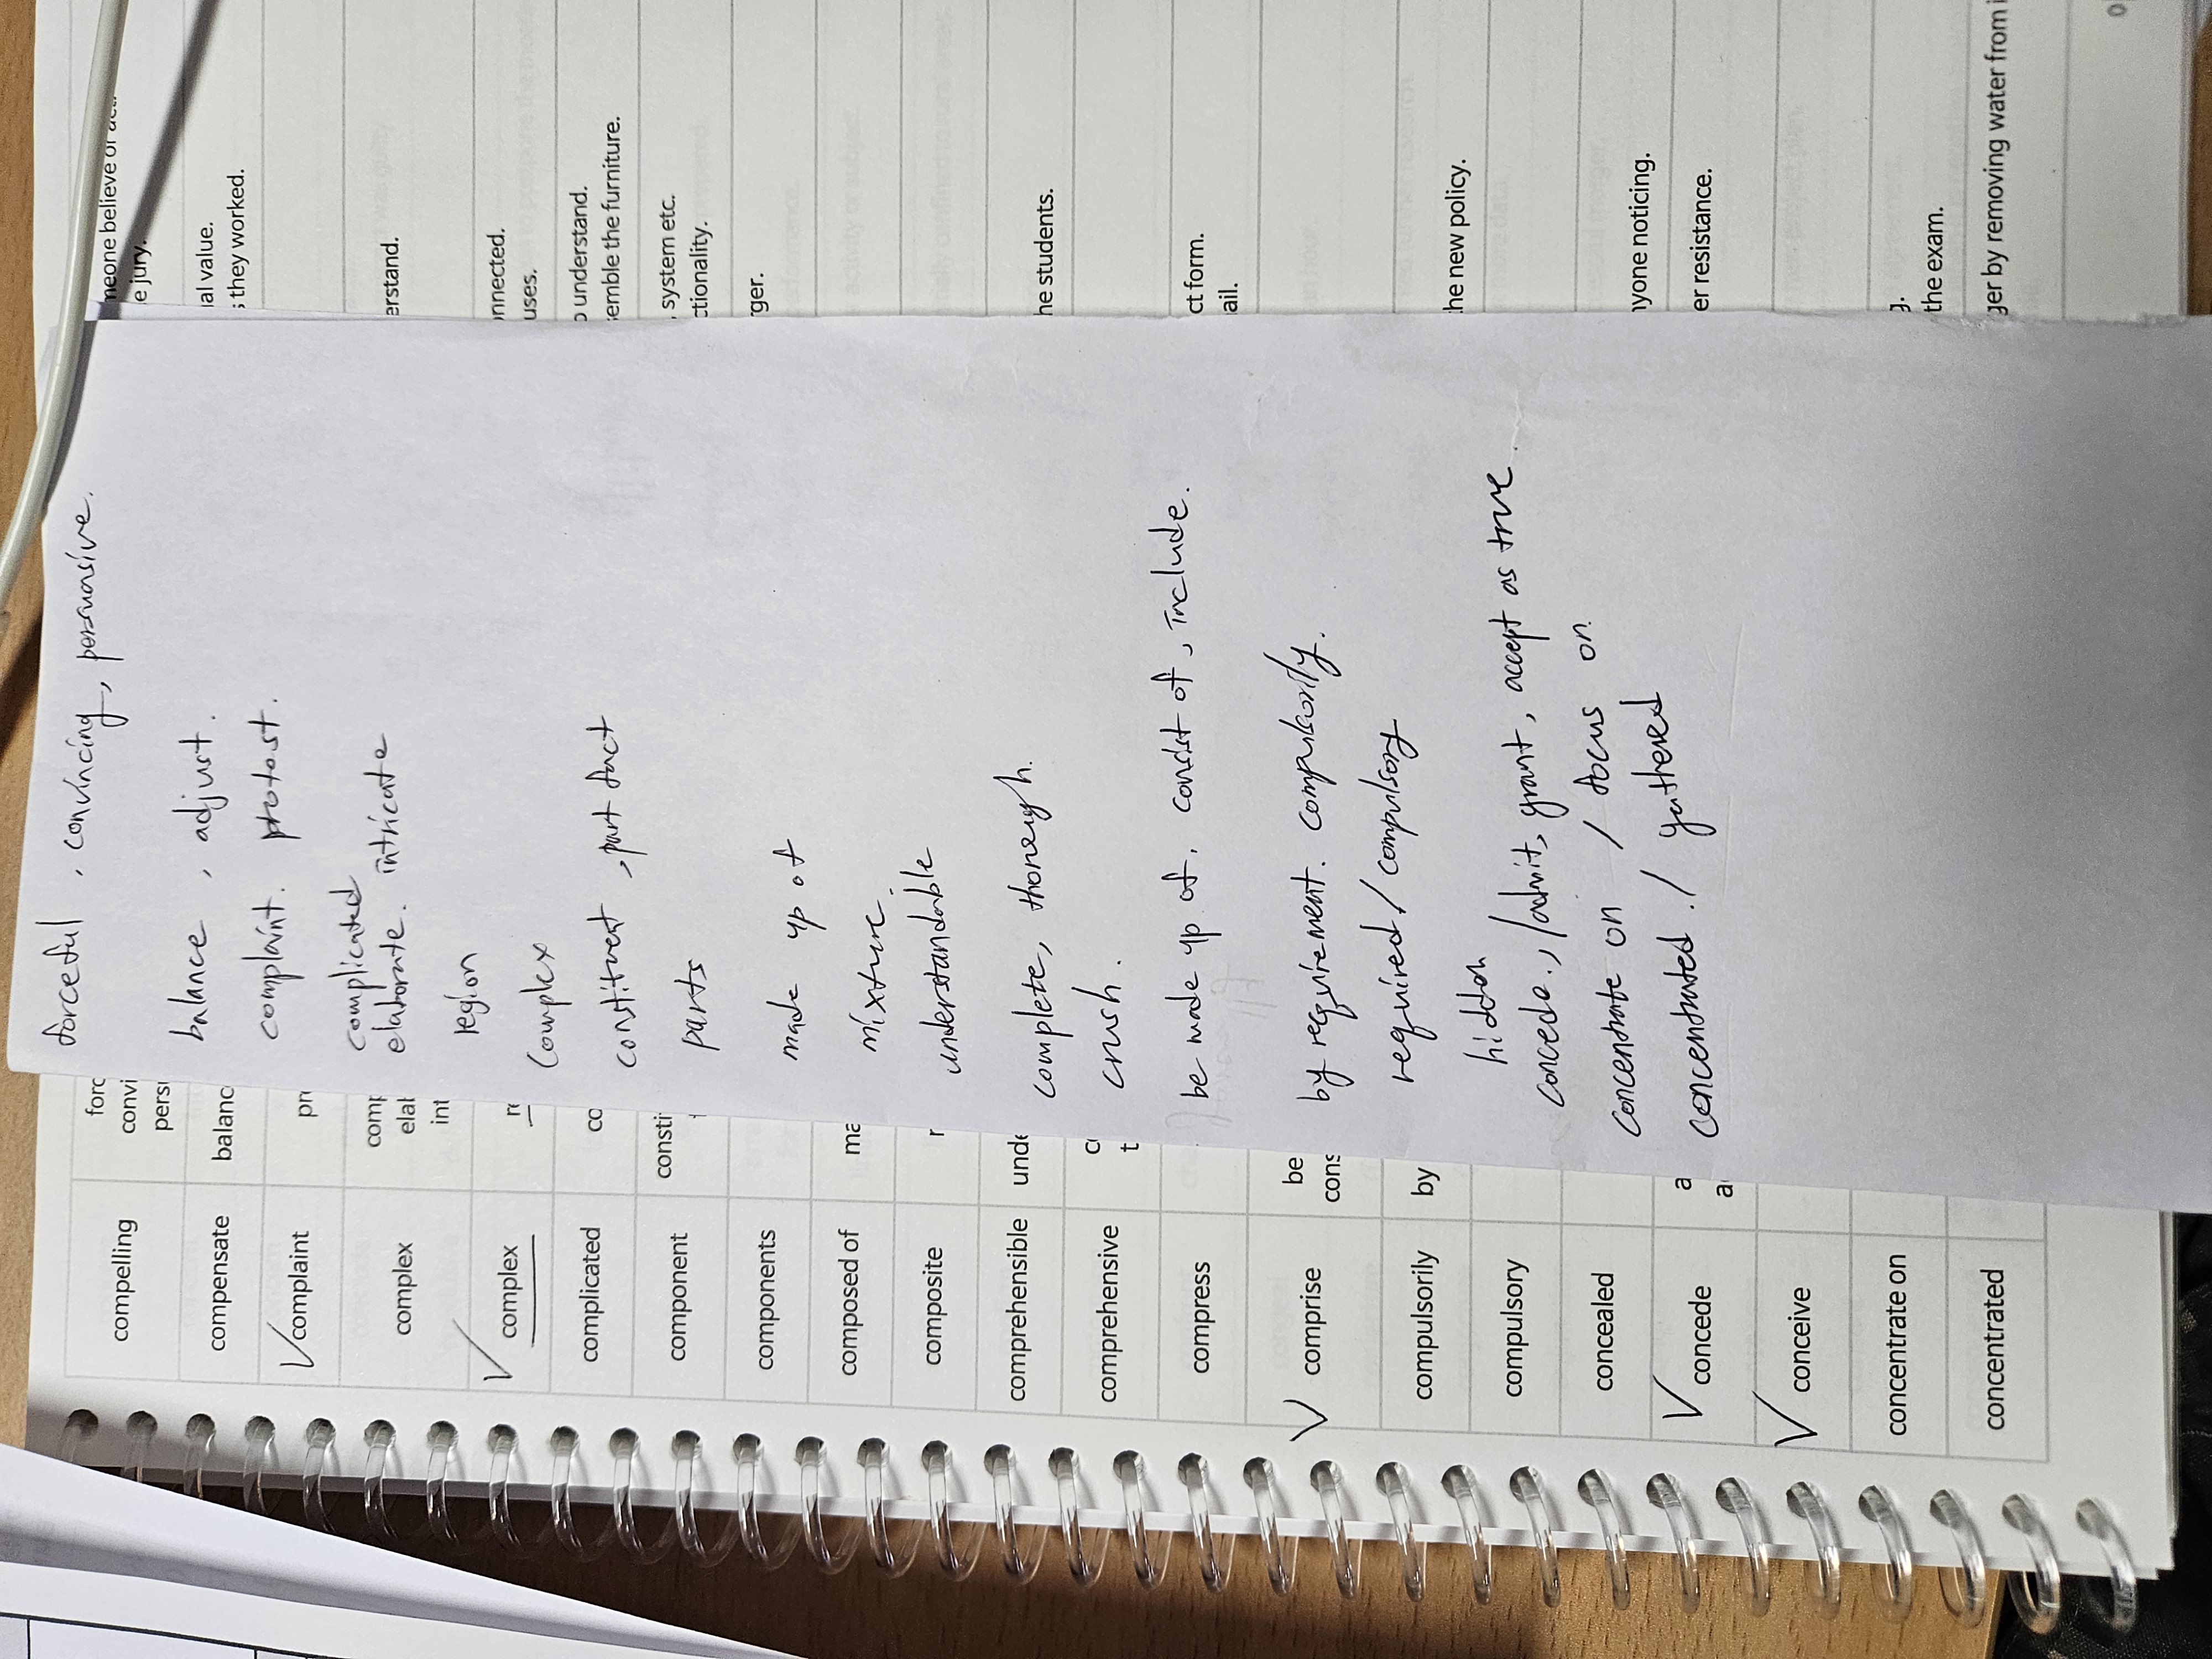 compelling
forc
convi
pers
forceful, convincing, persuasive.
meone believe or
e jury.
compensate
balanc
balance, adjust.
ial value.
s they worked.
complaint
pr
complaint. protost.
complex
comp
elal
int
complicated
elaborate. intricate
erstand.
complex
region
nnected.
uses.
complicated
co
complex
o understand.
emble the furniture.
component
consti
constituent, part fact
, system etc.
ctionality.
components
parts
rger.
composed of
ma
made up of
composite
mixture.
comprehensible
unde
understandable
he students.
comprehensive
complete, thorough.
compress
crush.
ct form.
ail.
comprise
be
cons
be made up of, consist of, include.
compulsorily
by
by requirement. compulsorily.
he new policy.
compulsory
required / compulsory
concealed
hiddoh
nyone noticing.
concede
a
a
concedo., /admit, grant, accept as true.
er resistance.
conceive
concentrate on
concentrate on / focus on
g.
the exam.
concentrated
concentrated. / gathered
ger by removing water from i